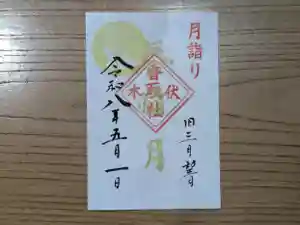 月詣り
旧三月望月
香取社
伏木
月
令和八年五月一日